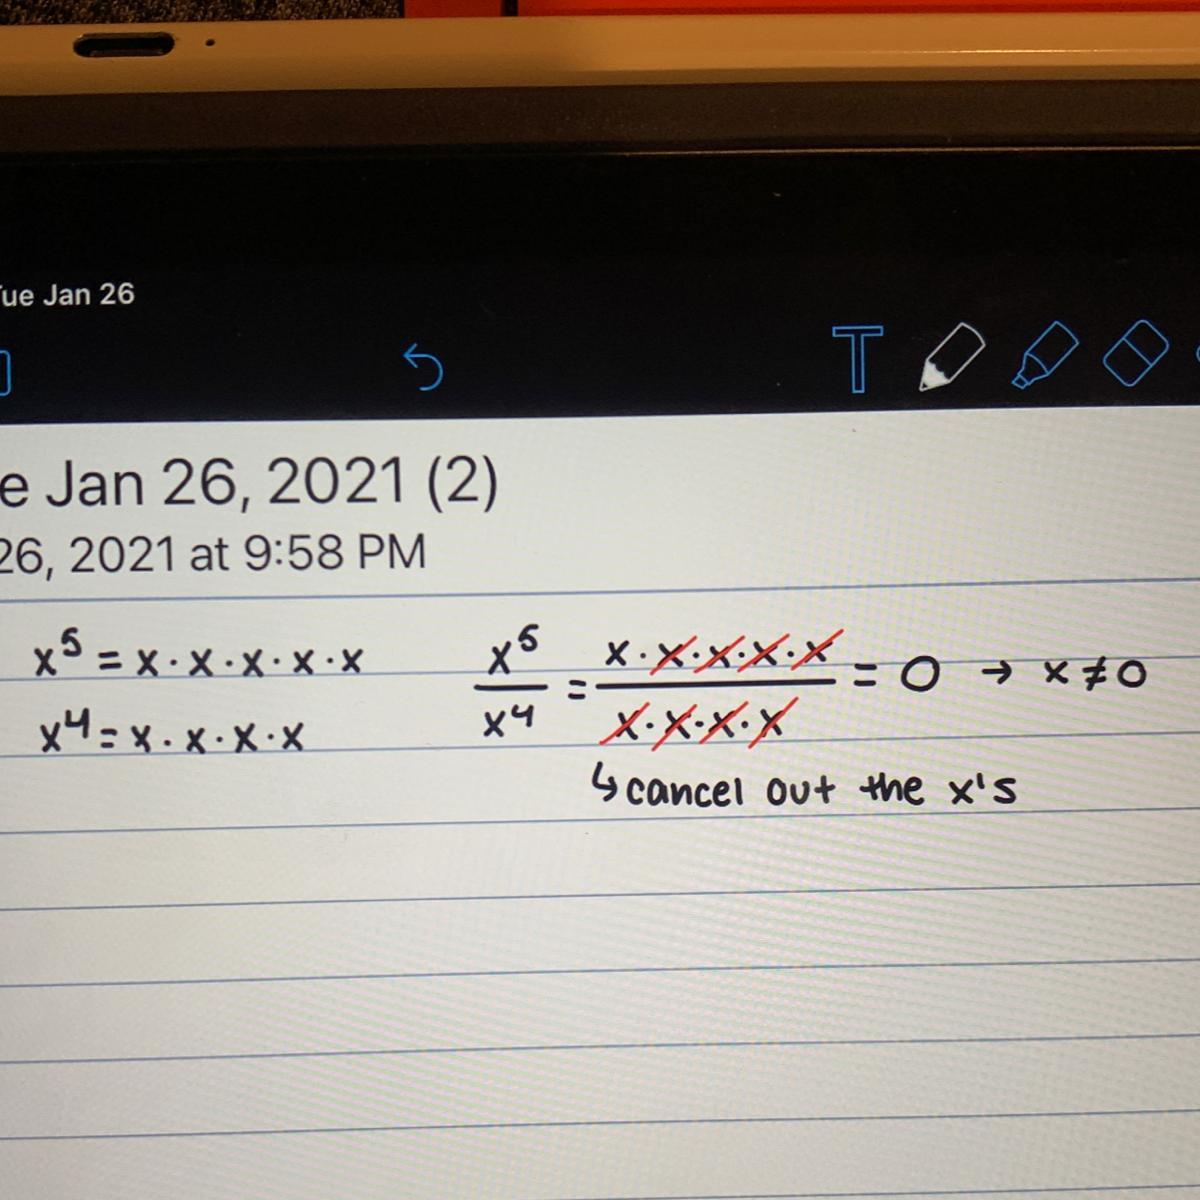 Tue Jan 26
T
e Jan 26, 2021 (2)
26, 2021 at 9:58 PM
x⁵ = x · x · x · x · x
x⁴ = x · x · x · x
x⁵/x⁴ = x · x · x · x · x / x · x · x · x = 0 → x ≠ 0
↳ cancel out the x's